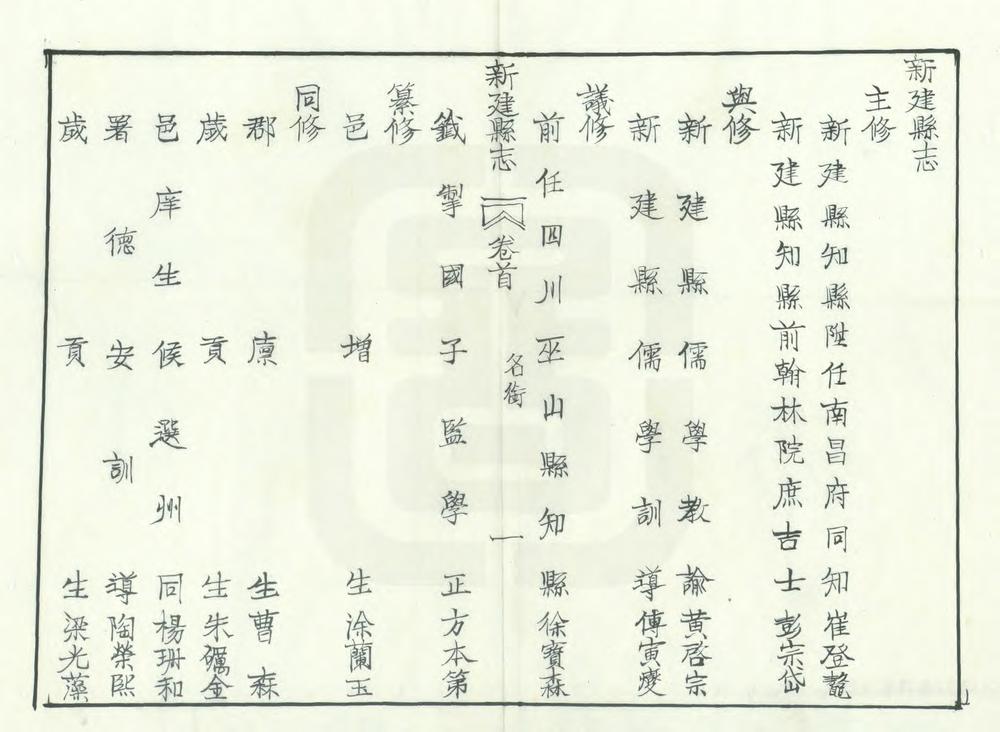 新建縣志
主修
新建縣知縣陞任南昌府同知崔登鼇
新建縣知縣前翰林院庶吉士彭宗岱
與修
新建縣儒學教諭黄啓宗
新建縣儒學訓導傅寅燮
議修
前任四川巫山縣知縣徐寶森
新建縣志
卷首
名銜
一
籤掣國子監學正方本第
纂修
邑增生涂蘭玉
同修
郡廩生曹森
歲貢生朱礪金
邑庠生候選州同楊珊和
署德安訓導陶榮熙
歲貢生梁光藻